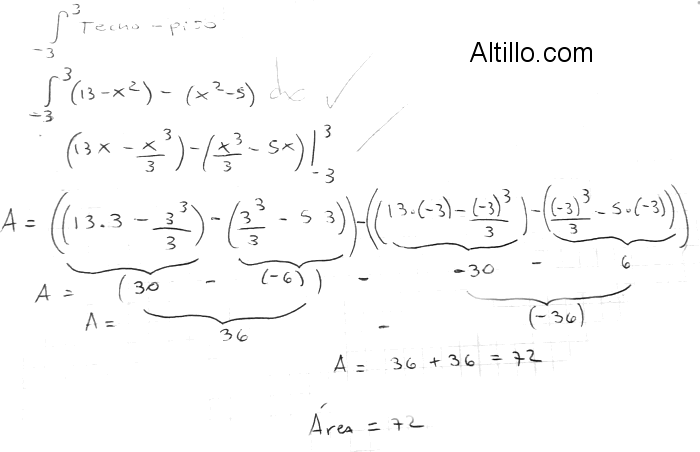 ∫₋₃³ Techo - piso
Altillo.com
∫₋₃³ (13 - x²) - (x² - 5) dx
(13x - x³/3) - (x³/3 - 5x) |₋₃³
A = ((13.3 - 3³/3) - (3³/3 - 5 3)) - ((13.(-3) - (-3)³/3) - ((-3)³/3 - 5.(-3)))
A = (30 - (-6)) - -30 - 6
A = 36 - (-36)
A = 36 + 36 = 72
Área = 72